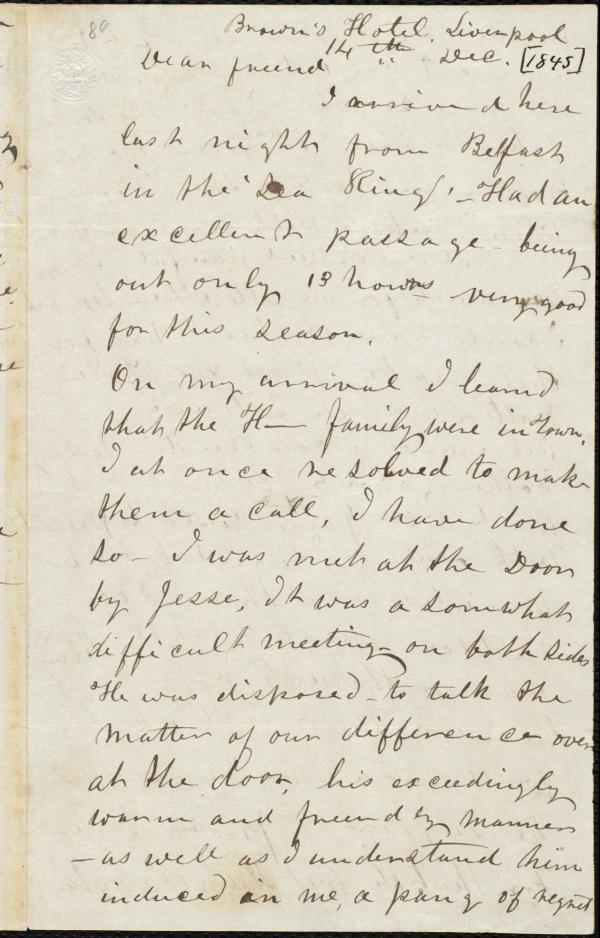 80
Brown's Hotel. Liverpool
14th " Dec. [1845]
Dear friend
I arrived here
last night from Belfast
in the 'Sea King'. - Had an
excellent passage - being
out only 13 hours very good
for this season.
On my arrival I learnd
that the H— family were in town.
I at once resolved to make
them a call, I have done
so - I was met at the Door
by Jesse, It was a somwhat
difficult meeting - on both sides
He was disposed - to talk the
matter of our difference over
at the door, his exceedingly
warm and friendly manner
- as well as I understand him
induced in me, a pang of regret